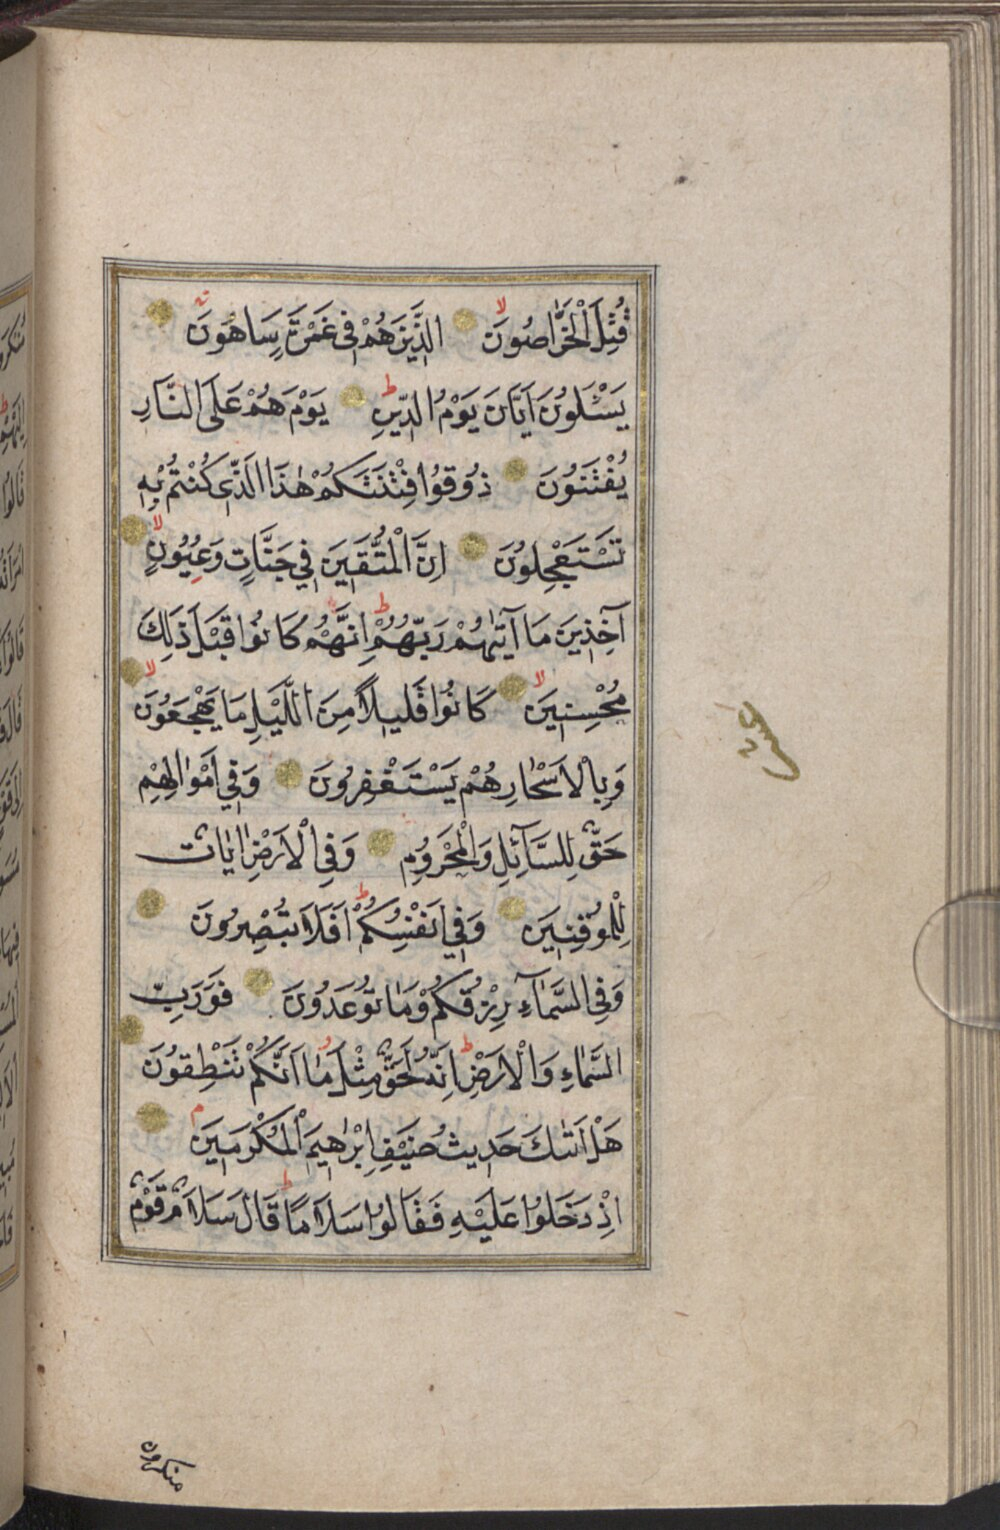 قُتِلَ الْخَرَّاصُونَ الَّذِينَ هُمْ فِي غَمْرَةٍ سَاهُونَ
يَسْئَلُونَ اَيَّانَ يَوْمُ الدِّينِ يَوْمَ هُمْ عَلَى النَّارِ
يُفْتَنُونَ ذُوقُوا فِتْنَتَكُمْ هٰذَا الَّذِي كُنْتُمْ بِهِ
تَسْتَعْجِلُونَ اِنَّ الْمُتَّقِينَ فِي جَنَّاتٍ وَعُيُونٍ
آخِذِينَ مَا آتٰيهُمْ رَبُّهُمْ اِنَّهُمْ كَانُوا قَبْلَ ذَلِكَ
مُحْسِنِينَ كَانُوا قَلِيلًا مِنَ الَّيْلِ مَا يَهْجَعُونَ
وَبِالْاَسْحَارِ هُمْ يَسْتَغْفِرُونَ وَفِي اَمْوَالِهِمْ
حَقٌّ لِلسَّآئِلِ وَالْمَحْرُومِ وَفِي الْاَرْضِ اٰيَاتٌ
لِلْمُوقِنِينَ وَفِي اَنْفُسِكُمْ اَفَلَا تُبْصِرُونَ
وَفِي السَّمَآءِ رِزْقُكُمْ وَمَا تُوعَدُونَ فَوَرَبِّ
السَّمَاءِ وَالْاَرْضِ اِنَّهُ لَحَقٌّ مِثْلَ مَا اَنَّكُمْ تَنْطِقُونَ
هَلْ اَتٰيكَ حَدِيثُ ضَيْفِ اِبْرٰهِيمَ الْمُكْرَمِينَ
اِذْ دَخَلُوا عَلَيْهِ فَقَالُوا سَلَامًا قَالَ سَلَامٌ قَوْمٌ
منكرون